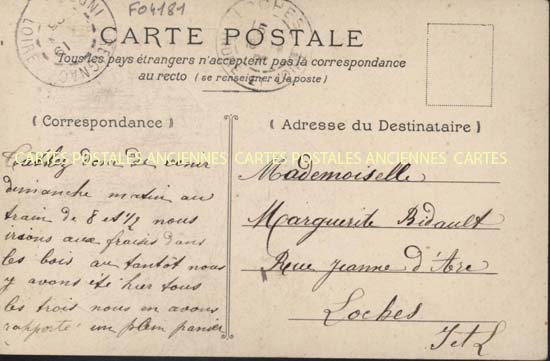 F04181
LOCHES
LOIRE
CARTE POSTALE
Tous les pays étrangers n'acceptent pas la correspondance
au recto (se renseigner à la poste)
(Correspondance)
(Adresse du Destinataire)
CARTES POSTALES ANCIENNES CARTES POSTALES ANCIENNES CARTES
donc de venir
dimanche matin au
train de 8 et ½ nous
irions aux fraises dans
les bois au tantôt nous
y avons été hier tous
les trois nous en avons
rapporté un plein panier
Mademoiselle
Marguerite Bidault
Rue Jeanne d'Arc
Loches
I et L